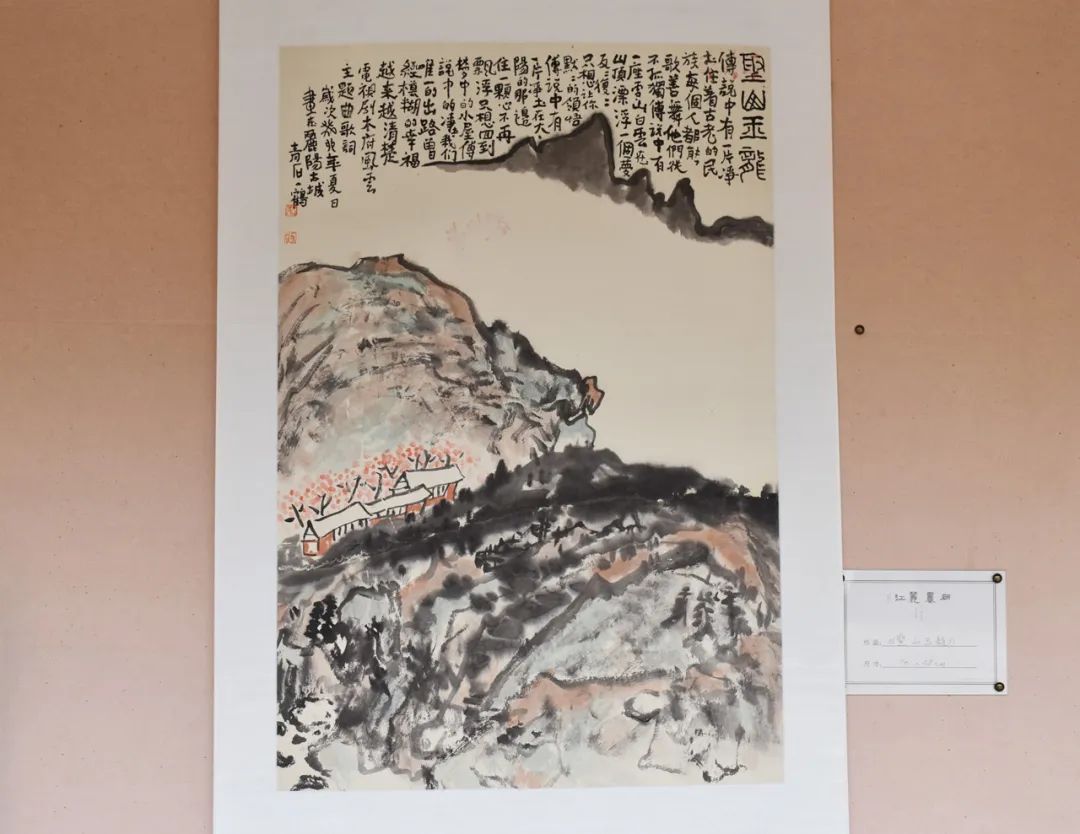 聖山玉龍
傳說中有一片淨
土住着古老的民
族每個人都能
歌善舞他們從
不孤獨傳說中有
一座雪山白雲在
山頂漂浮一個夢
反復〻
只想讓你
默〻的領悟
傳說中有
一片淨土在太
陽的那邊
住一顆心不再
飄浮只想回到
夢中的小屋傳
說中的淒我們
唯一的出路曾
經模糊的幸福
越来越清楚
電視劇木府風雲
主題曲歌詞
歲次癸卯年夏日
畫在麗陽古城
青石一鶴